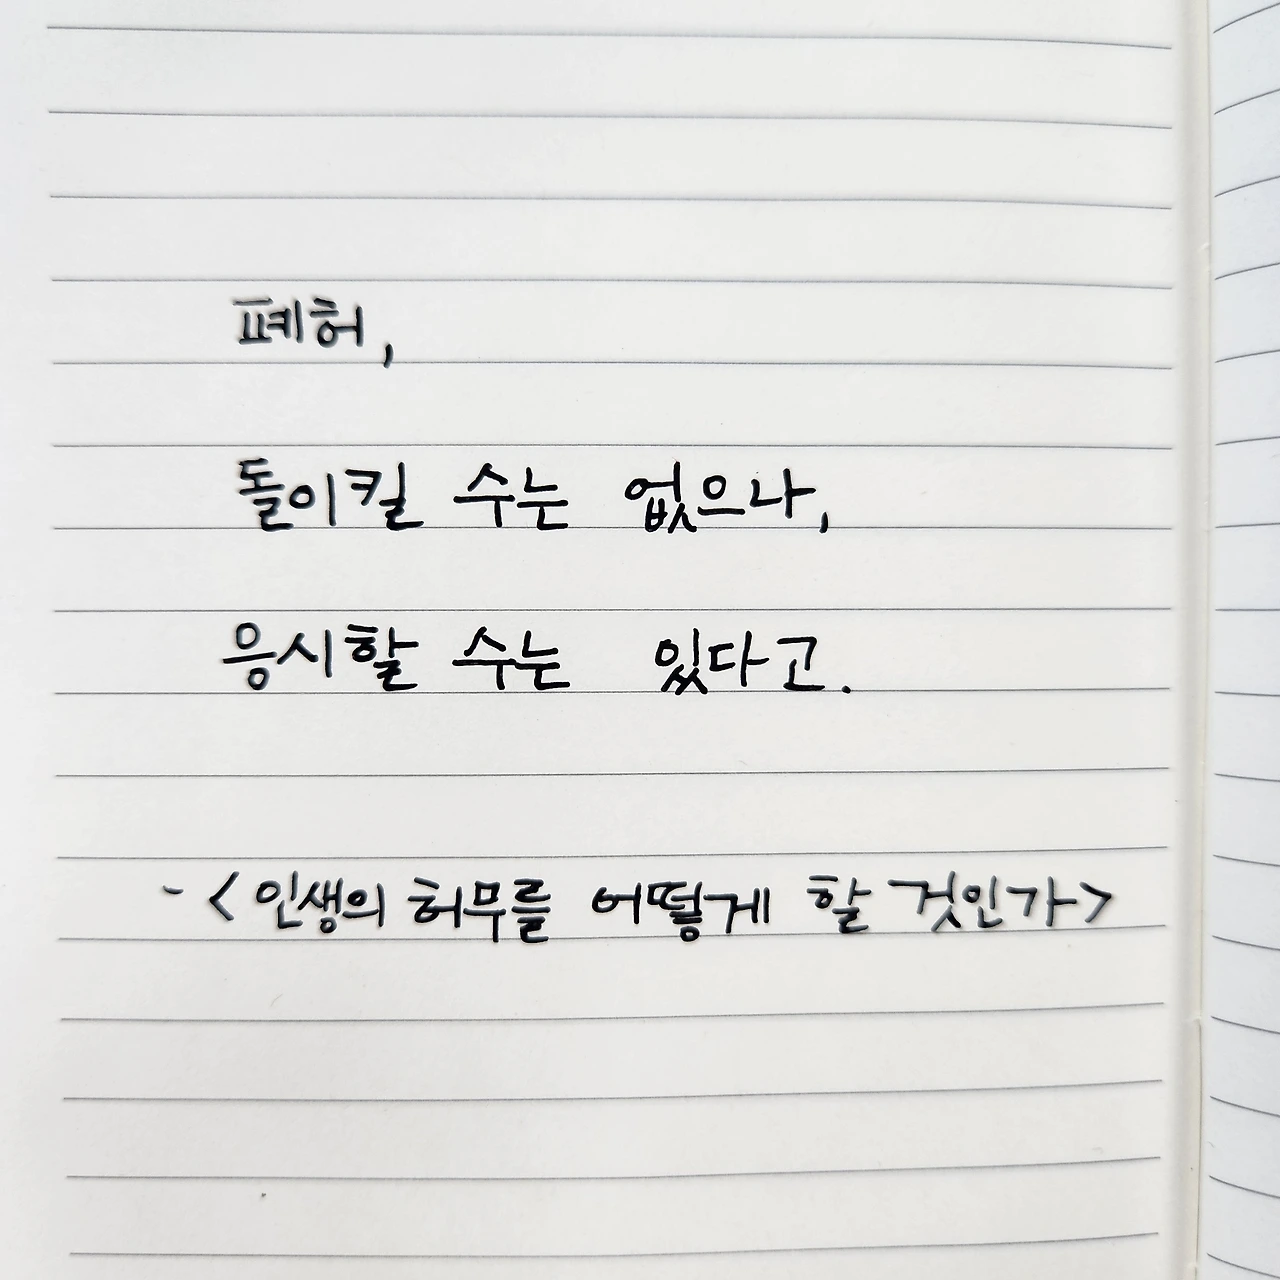 폐허,
돌이킬 수는 없으나,
응시할 수는 있다고.
- <인생의 허무를 어떻게 할 것인가>